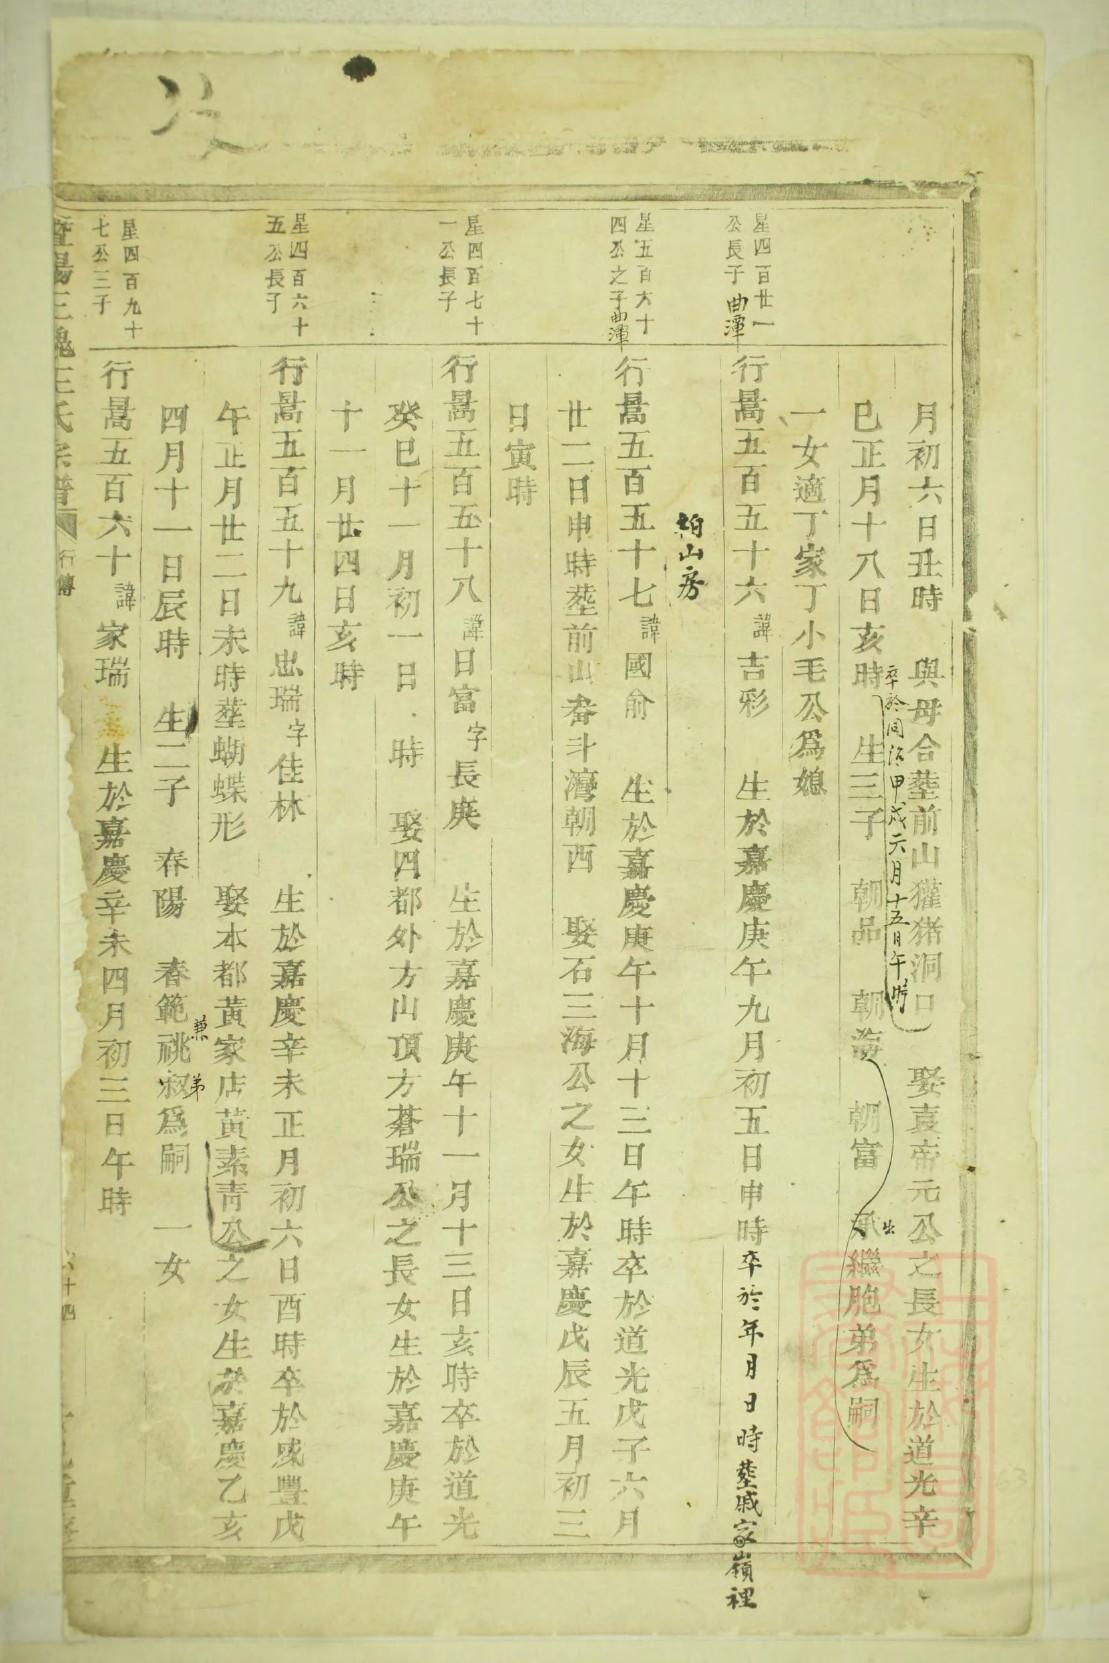 月初六日丑時 與母合塟前山獾猪洞口 娶袁帝元公之長女生於道光辛
卒於同治甲戌六月十五日午時
巳正月十八日亥時 生三子 朝品 朝海 朝富 出繼胞弟爲嗣
一女適丁家丁小毛公爲媳
星四百廿一
公長子 曲潭
行暠五百五十六 諱吉彩 生於嘉慶庚午九月初五日申時卒於年月日時塟戚家嶺裡
柏山房
星五百六十
四公之子 曲潭
行暠五百五十七 諱國俞 生於嘉慶庚午十月十三日午時卒於道光戊子六月
廿二日申時塟前山畚斗灣朝西 娶石三海公之女生於嘉慶戊辰五月初三
日寅時
星四百七十
一公長子
行暠五百五十八 諱日富 字長庚 生於嘉慶庚午十一月十三日亥時卒於道光
癸巳十一月初一日 時 娶四都外方山頂方蒼瑞公之長女生於嘉慶庚午
十一月廿四日亥時
星四百六十
五公長子
行暠五百五十九 諱忠瑞 字佳林 生於嘉慶辛未正月初六日酉時卒於咸豐戊
午正月廿二日未時塟蝴蝶形 娶本都黃家店黃素青公之女生於嘉慶乙亥
四月十一日辰時 生二子 春陽 春範 兼祧叔弟爲嗣 一女
星四百九十
七公三子
行暠五百六十 諱家瑞 生於嘉慶辛未四月初三日午時
暨陽三槐王氏宗譜 行傳 六十四